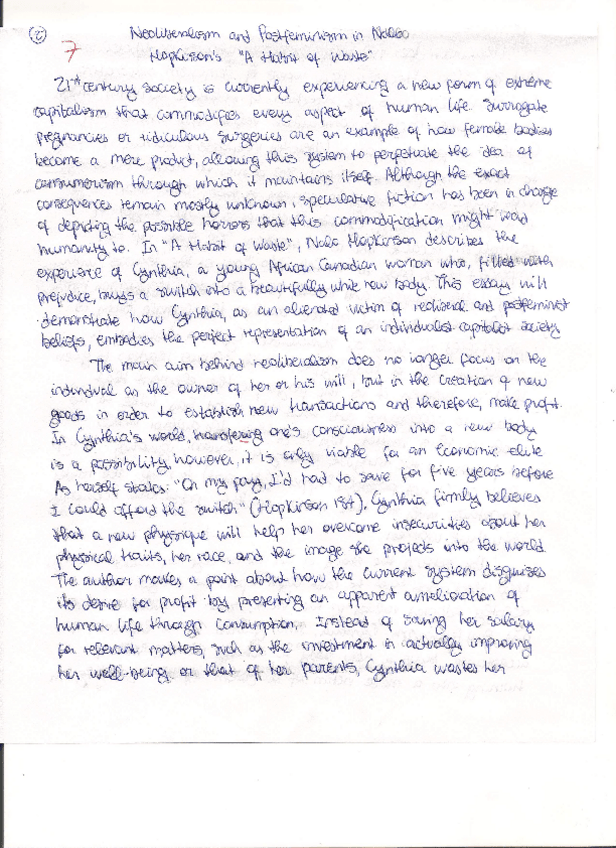 2
7
Neoliberalism and Postfeminism in Nalo
Hopkinson's "A Habit of Waste"
21st century society is currently experiencing a new form of extreme
capitalism that commodifies every aspect of human life. Surrogate
pregnancies or ridiculous surgeries are an example of how female bodies
become a mere product, allowing this system to perpetuate the idea of
consumerism through which it maintains itself. Although the exact
consequences remain mostly unknown, speculative fiction has been in charge
of depicting the possible horrors that this commodification might lead
humanity to. In "A Habit of Waste", Nalo Hopkinson describes the
experience of Cynthia, a young African Canadian woman who, filled with
prejudice, buys a switch into a beautifully white new body. This essay will
demonstrate how Cynthia, as an alienated victim of neoliberal and postfeminist
beliefs, embodies the perfect representation of an individualist capitalist society
The main aim behind neoliberalism does no longer focus on the
individual as the owner of her or his will, but in the creation of new
goods in order to establish new transactions and therefore, make profit.
In Cynthia's world, transfering one's consciousness into a new body
is a possibility, however, it is only viable for an economic elite
As herself states: "On my pay, I'd had to save for five years before
I could afford the switch" (Hopkinson). Cynthia firmly believes
that a new physique will help her overcome insecurities about her
physical traits, her race, and the image she projects into the world
The author makes a point about how the current system disguises
its desire for profit by presenting an apparent amelioration of
human life through consumption. Instead of saving her salary
for relevant matters, such as the investment in actually improving
her well-being or that of her parents, Cynthia wastes her